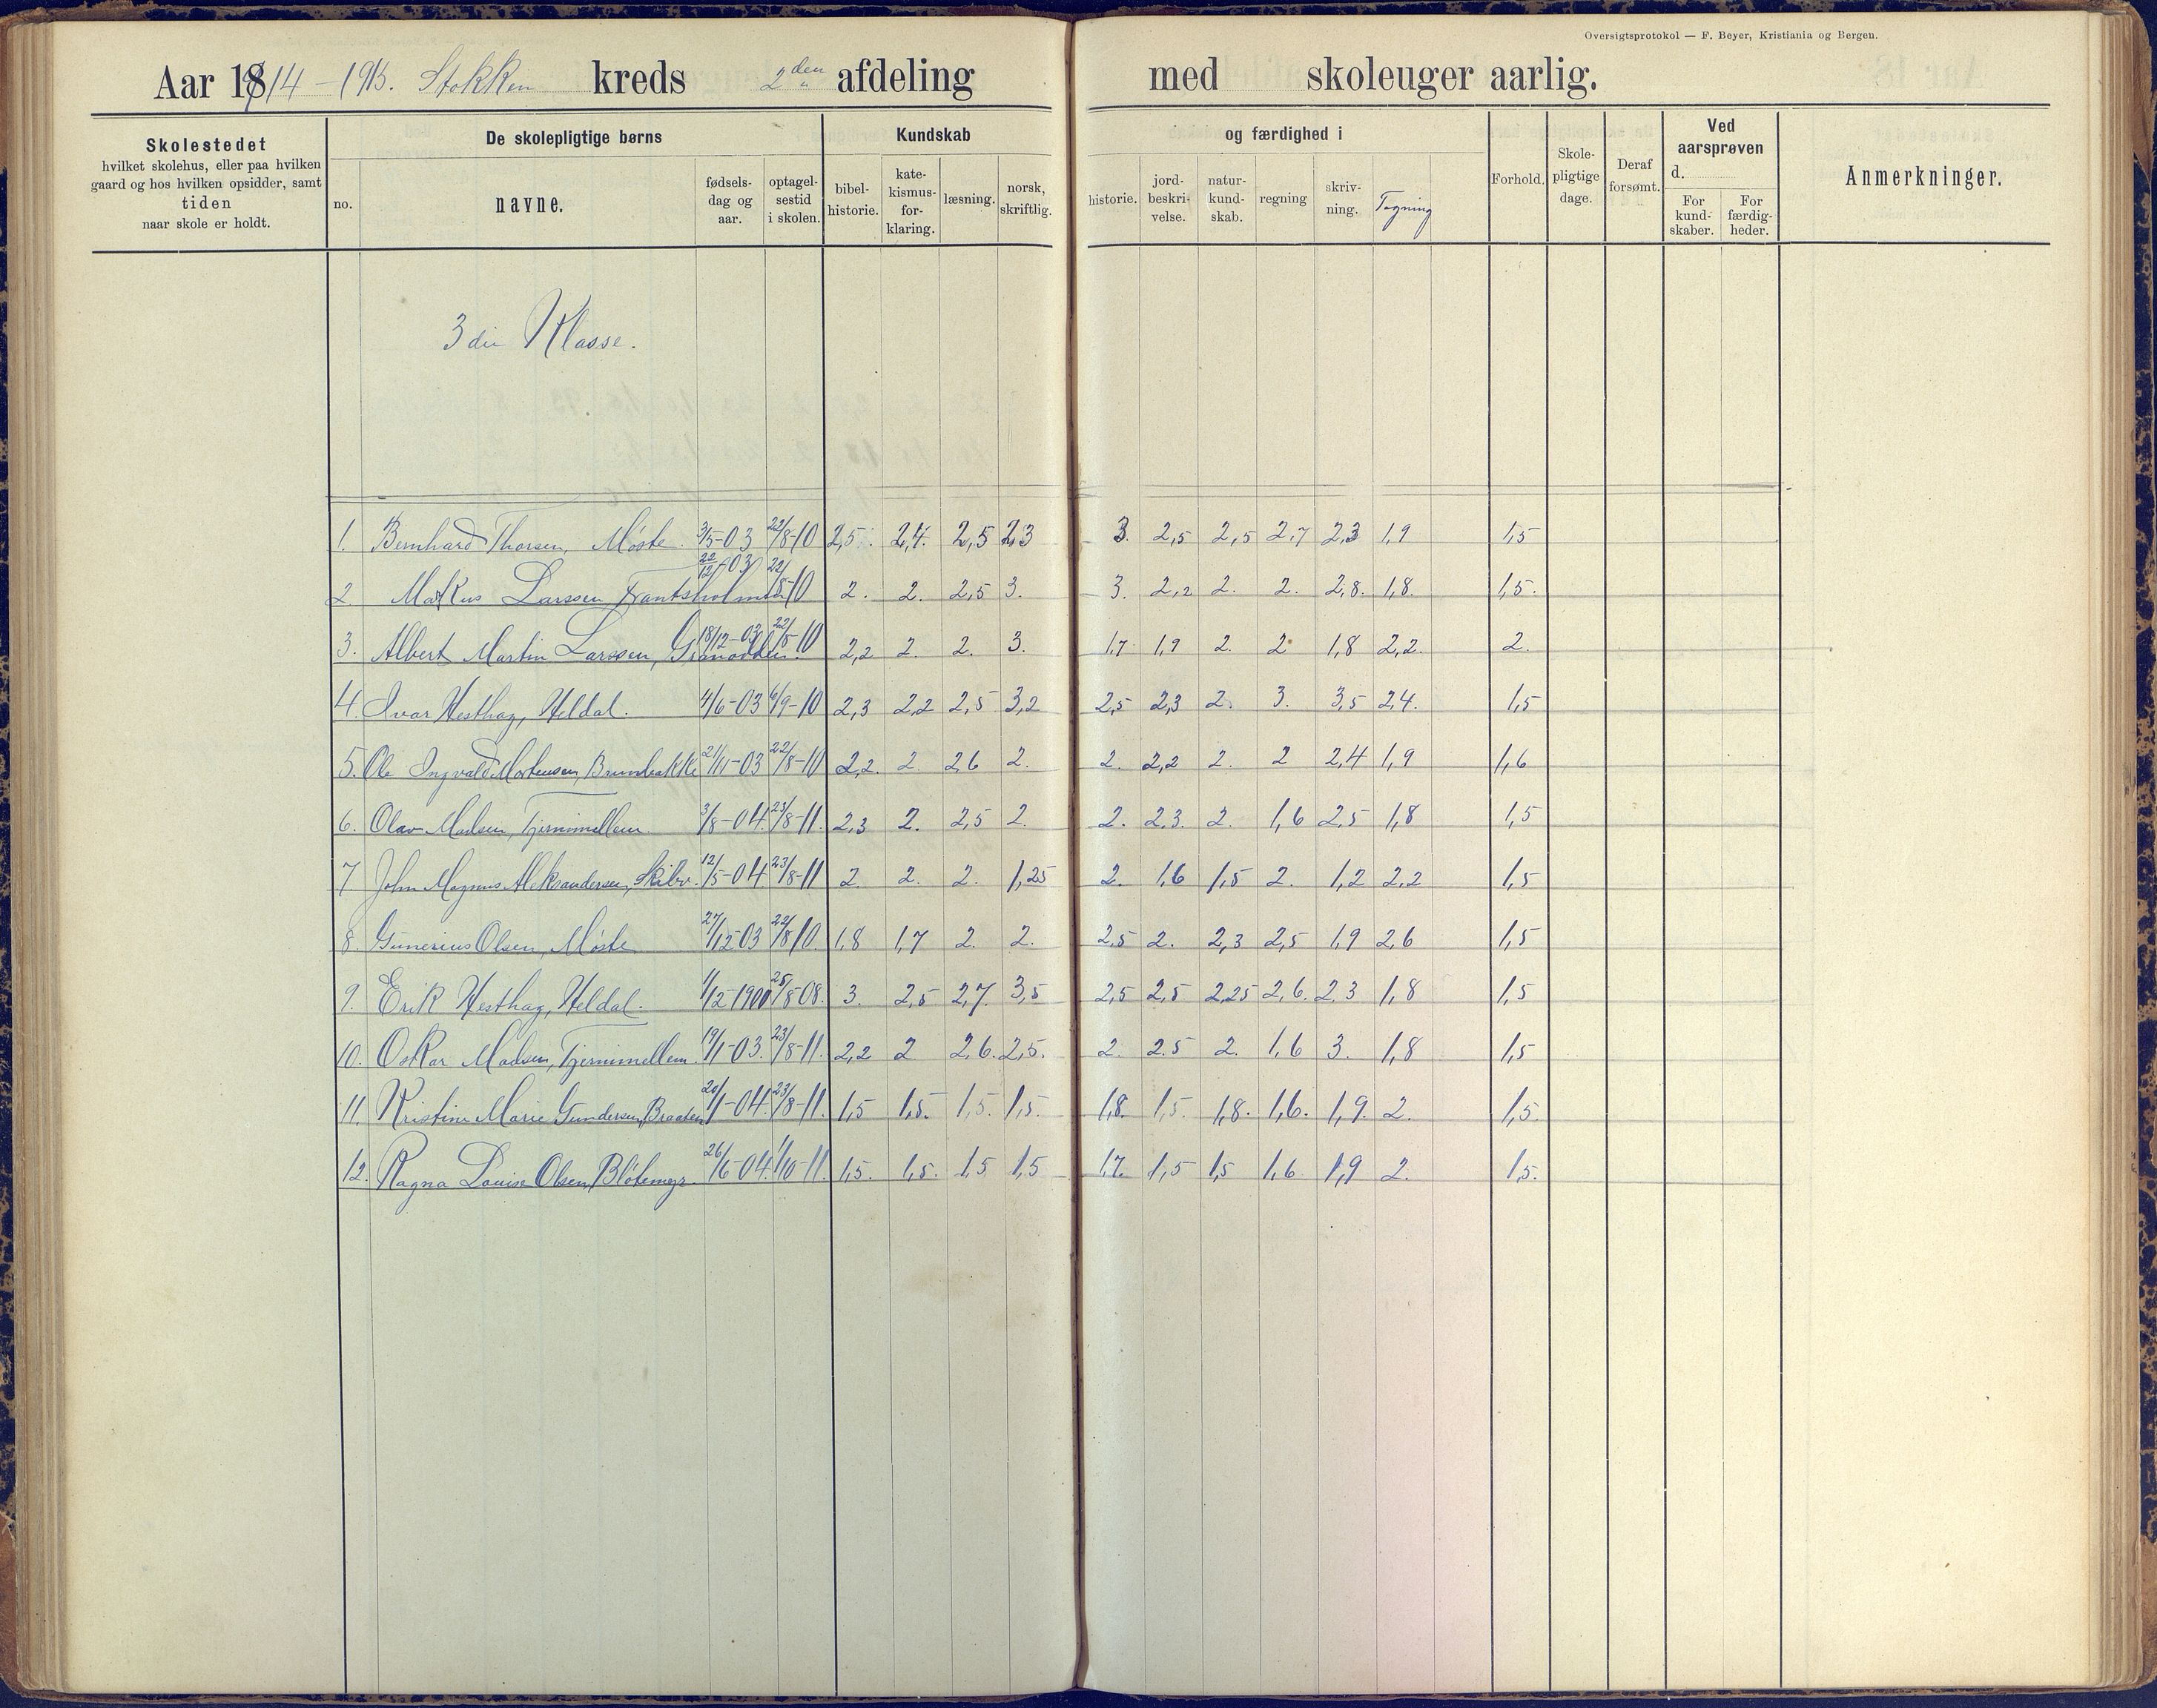 Oversigtsprotokol — F. Beyer, Kristiania og Bergen.
Aar 1914 – 1915. Stokken kreds 2den afdeling med skoleuger aarlig.
Skolestedet
hvilket skolehus, eller paa hvilken
gaard og hos hvilken opsidder, samt
tiden
naar skole er holdt.
De skolepligtige børns
no.
navne.
fødsels-
dag og
aar.
optagel-
sestid
i skolen.
Kundskab
bibel-
historie.
kate-
kismus-
for-
klaring.
læsning.
norsk,
skriftlig.
og færdighed i
historie.
jord-
beskri-
velse.
natur-
kund-
skab.
regning
skriv-
ning.
Tegning
Forhold.
Skole-
pligtige
dage.
Deraf
forsømt.
Ved
aarsprøven
d.
For
kund-
skaber.
For
færdig-
heder.
Anmerkninger.
3die Klasse.
1. Bernhard Thorsen, Møste. 3/5-03 22/8-10 2,5. 2,4. 2,5 2,3 3. 2,5 2,5 2,7 2,3 1,9 1,5
2 Markus Larssen 22/12-03 22/8-10 2. 2. 2,5 3. 3. 2,2 2. 2. 2,8. 1,8. 1,5.
3. Albert Martin Larssen, 18/12-03 22/8-10 2,2 2. 2. 3. 1,7 1,9 2. 2 1,8 2,2. 2.
4. Ivar Hesthag, Heldal. 4/6-03 6/9-10 2,3 2,2 2,5 3,2 2,5 2,3 2. 3. 3,5 2,4. 1,5
5. Ole Ingvald Mortensen, Brundbakke 21/11-03 22/8-10 2,2. 2. 2,6 2. 2. 2,2 2. 2 2,4 1,9 1,6
6. Olav Madsen, Tjernmellem 3/8-04. 23/8-11. 2,3 2. 2,5 2. 2. 2,3. 2. 1,6 2,5 1,8 1,5
7 John Magnus Aleksandersen, Skibv. 12/5-04 23/8-11 2. 2. 2. 1,25 2. 1,6 1,5 2. 1,2 2,2 1,5
8. Gunerius Olsen, Møste 27/12-03 22/8 10. 1,8 1,7 2. 2. 2,5 2. 2,3 2,5 1,9 2,6 1,5
9. Erik Hesthag, Heldal. 1/12-1900 25/8-08. 3. 2,5 2,7. 3,5 2,5 2,5 2,25 2,6. 2,3 1,8 1,5
10. Oskar Madsen, Tjernmellem. 19/1-03. 23/8-11. 2,2 2 2,6. 2,5. 2. 2,5 2. 1,6 3. 1,8 1,5
11. Kristine Marie Gundersen, Braaten 20/1-04. 23/8-11. 1,5 1,5. 1,5. 1,5. 1,8. 1,5. 1,8. 1,6. 1,9. 2. 1,5.
12. Ragna Louise Olsen, Bløtemyr. 26/6-04. 1/10-11. 1,5. 1,5. 1,5 1,5 1,7. 1,5 1,5 1,6 1,9 2. 1,5.